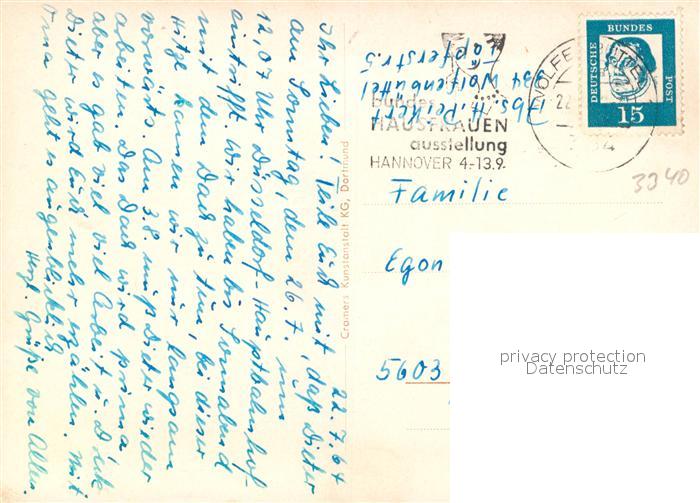 22.7.64
Ihr Lieben! Teile Euch mit, daß Dieter
am Sonntag, dem 26.7. um
12,07 Uhr Düsseldorf-Hauptbahnhof
eintrifft. Wir haben bis Sonnabend
mit dem Dach zu tun, bei dieser
Hitze kamen wir nur langsam
vorwärts. Am 3.8. muß Dieter wieder
arbeiten. Das Dach wird prima,
aber es gab viel viel Arbeit u. Dreck
Dieter wird Euch mehr erzählen. Mit
Oma geht es augenblicklich
Herzl. Grüße von Allen.
Cramers Kunstanstalt KG, Dortmund
Abs. H. Peikert
334 Wolfenbüttel
Töpferstr. 5
Bundes
HAUSFRAUEN
ausstellung
HANNOVER 4.-13.9.
WOLFENBÜTTEL
22.
334
DEUTSCHE
BUNDES
POST
15
3340
Familie
Egon
5603
privacy protection
Datenschutz